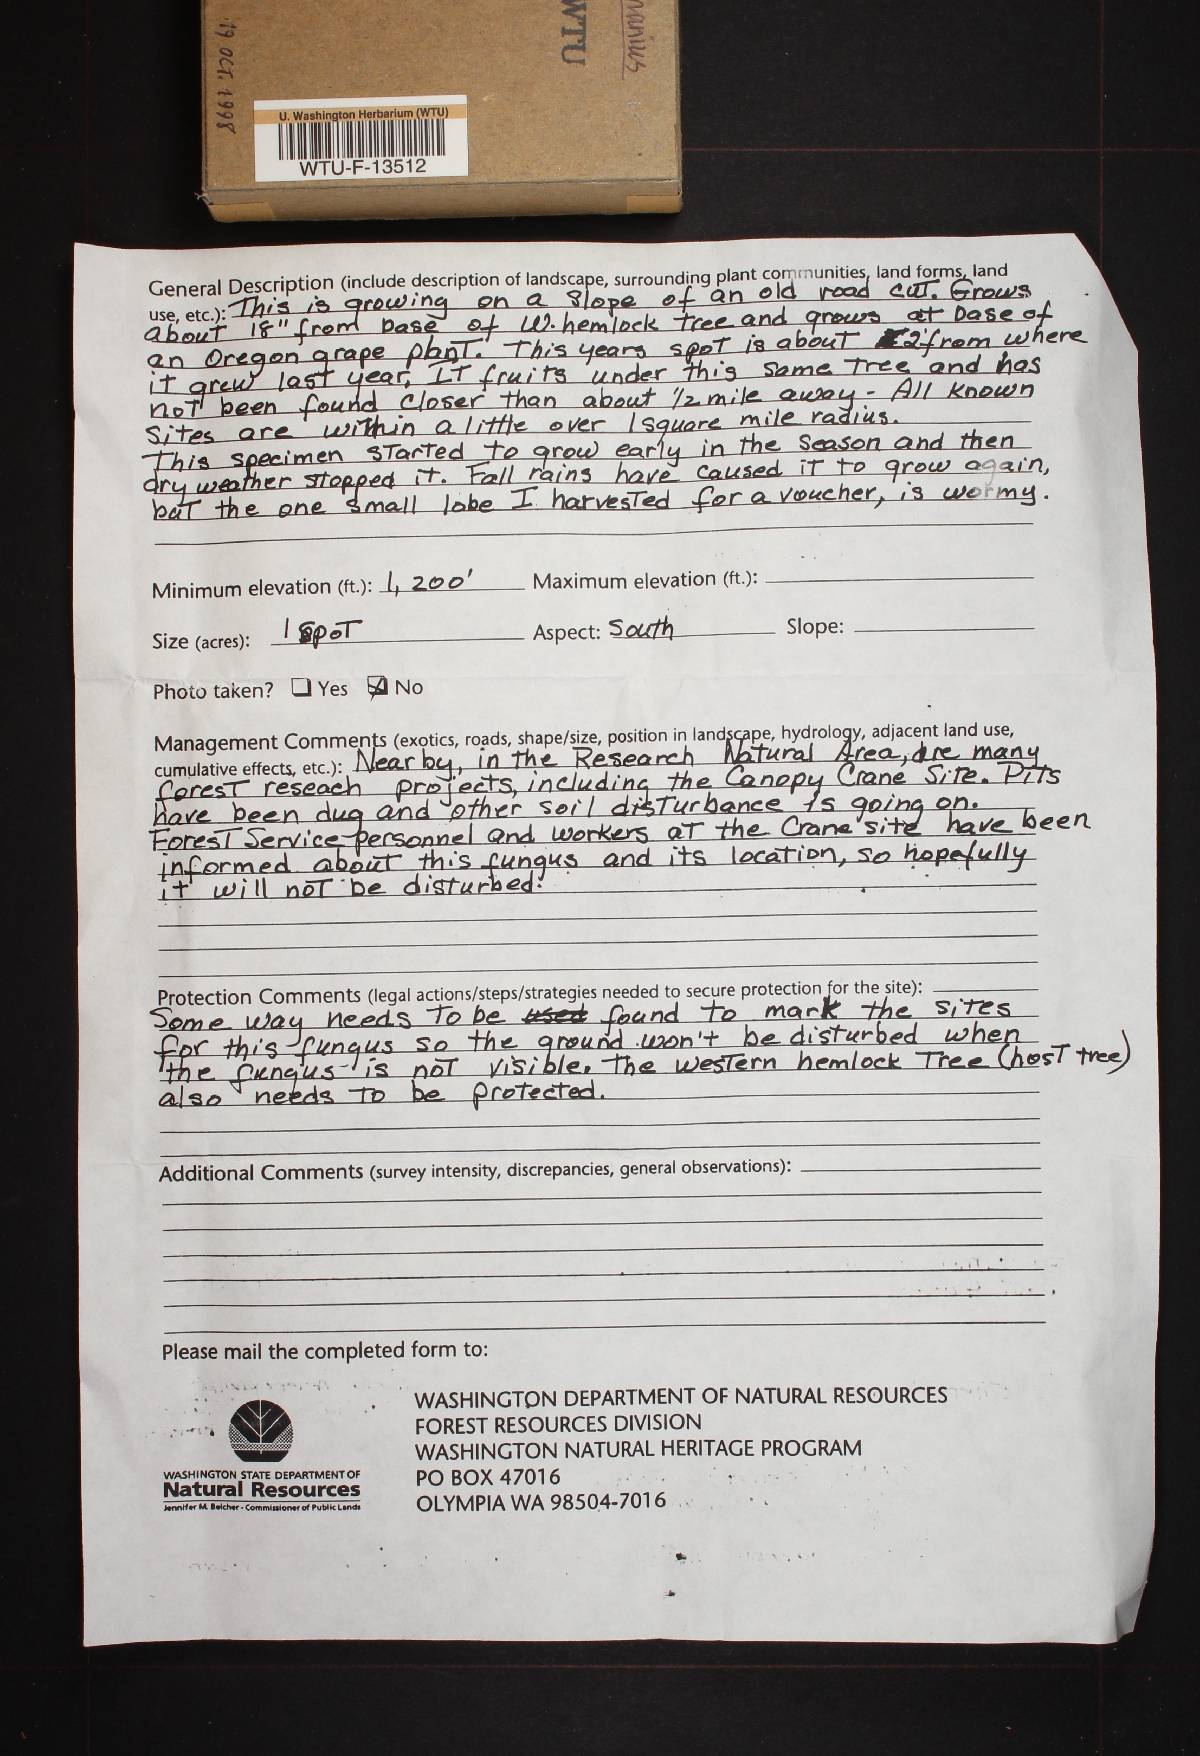 19 OCT. 1998
WTU
U. Washington Herbarium (WTU)
WTU-F-13512
General Description (include description of landscape, surrounding plant communities, land forms, land
use, etc.): This is growing on a slope of an old road cut. Grows
about 18" from base of W. hemlock tree and grows at base of
an Oregon grape plant. This years spot is about 2' from where
it grew last year. It fruits under this same tree and has
not been found closer than about 1/2 mile away - All known
sites are within a little over 1 square mile radius.
This specimen started to grow early in the season and then
dry weather stopped it. Fall rains have caused it to grow again,
but the one small lobe I harvested for a voucher, is wormy.
Minimum elevation (ft.): 1,200' Maximum elevation (ft.):
Size (acres): 1 spot Aspect: South Slope:
Photo taken? Yes No
Management Comments (exotics, roads, shape/size, position in landscape, hydrology, adjacent land use,
cumulative effects, etc.): Nearby, in the Research Natural Area, are many
forest reseach projects, including the Canopy Crane Site. Pits
have been dug and other soil disturbance is going on.
Forest Service personnel and workers at the Crane site have been
informed about this fungus and its location, so hopefully
it will not be disturbed.
Protection Comments (legal actions/steps/strategies needed to secure protection for the site):
Some way needs to be used found to mark the sites
for this fungus so the ground won't be disturbed when
the fungus is not visible. The western hemlock tree (host tree)
also needs to be protected.
Additional Comments (survey intensity, discrepancies, general observations):
Please mail the completed form to:
WASHINGTON DEPARTMENT OF NATURAL RESOURCES
FOREST RESOURCES DIVISION
WASHINGTON NATURAL HERITAGE PROGRAM
PO BOX 47016
OLYMPIA WA 98504-7016
WASHINGTON STATE DEPARTMENT OF
Natural Resources
Jennifer M. Belcher - Commissioner of Public Lands